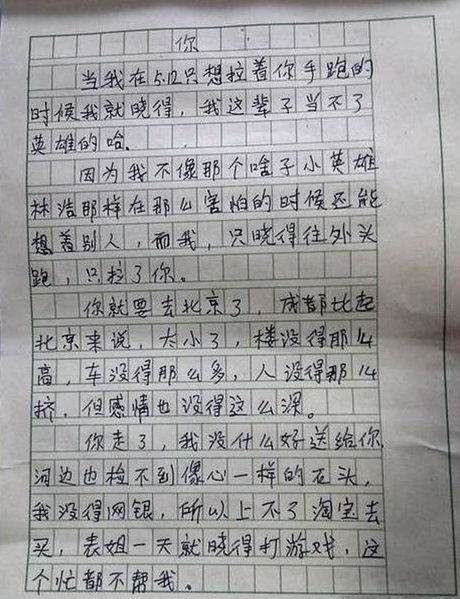 你
当我在5.12只想拉着你手跑的
时候我就晓得，我这辈子当不了
英雄的哈.
因为我不像那个啥子小英雄
林浩那样在那么害怕的时候还能
想着别人，而我，只晓得往外头
跑，只拉了你。
你就要去北京了，成都比起
北京来说，太小了，楼没得那么
高，车没得那么多，人没得那么
挤，但感情也没得这么深。
你走了，我没什么好送给你
河边也捡不到像心一样的石头，
我没得网银，所以上不了淘宝去
买，表姐一天就晓得打游戏，这
个忙都不帮我。